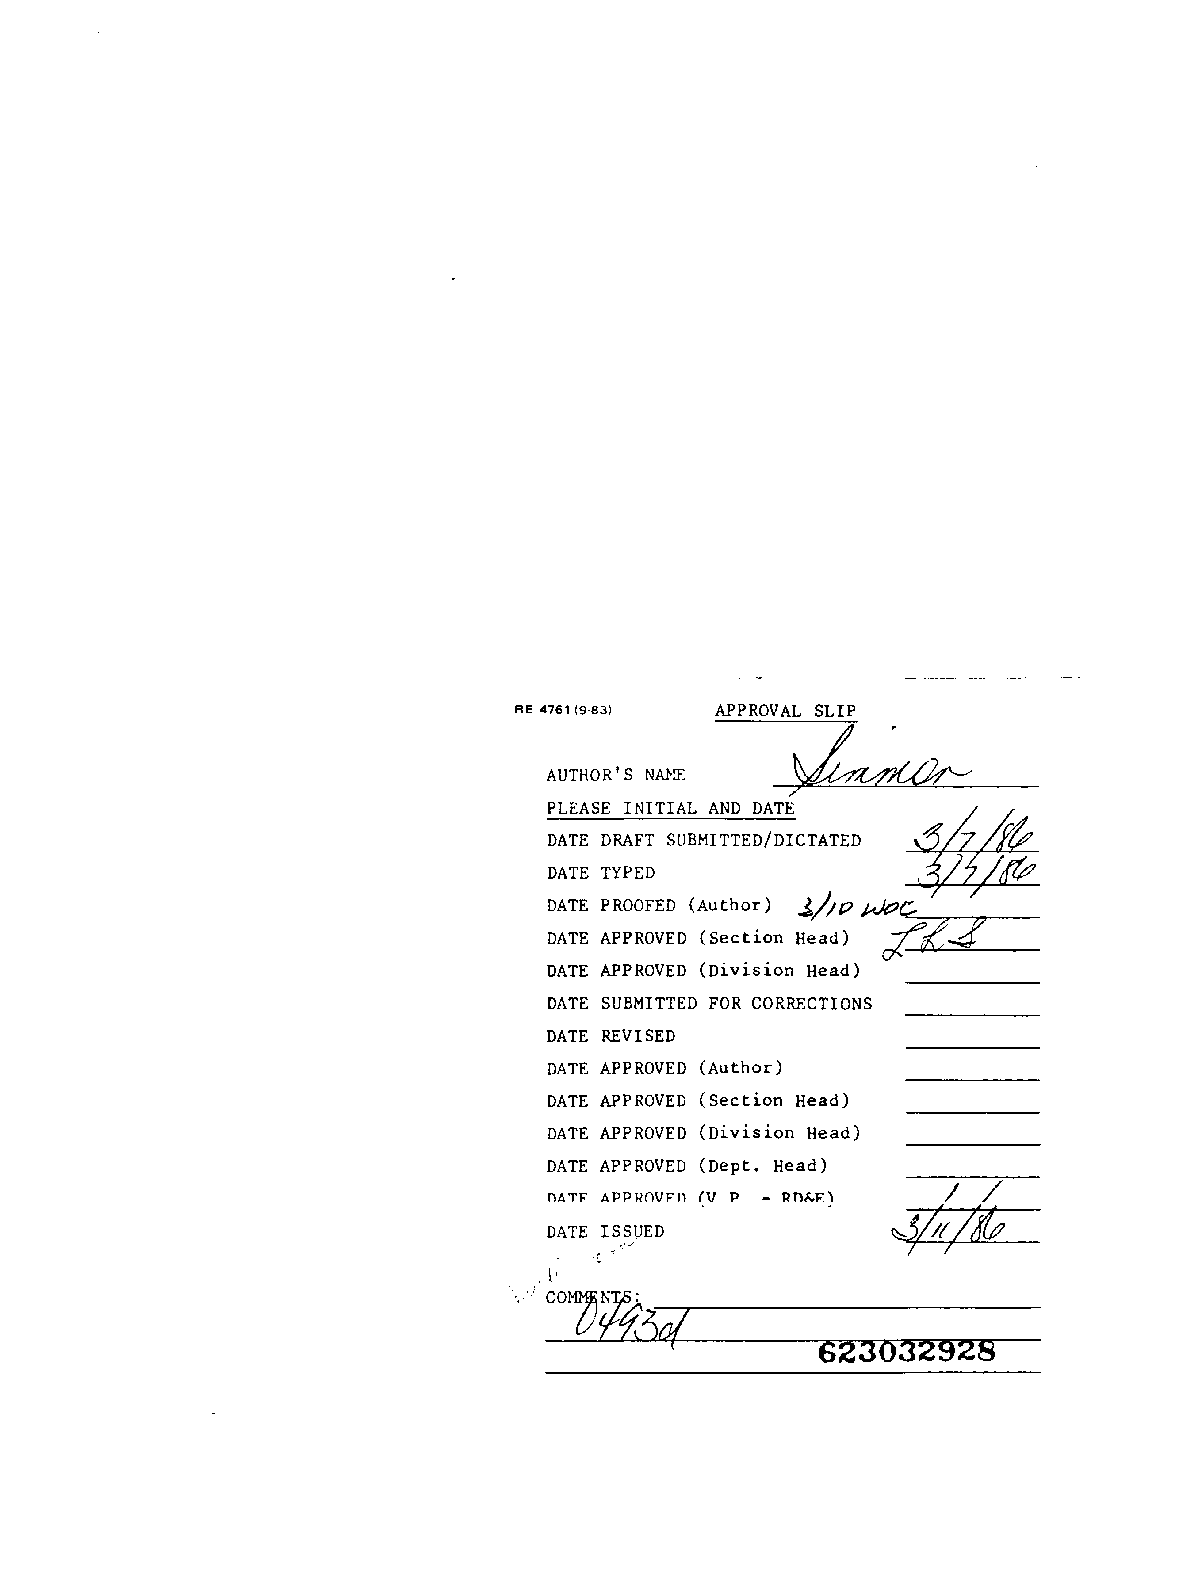 RE 4761 (9-83) APPROVAL SLIP
AUTHOR'S NAME
PLEASE INITIAL AND DATE
DATE DRAFT SUBMITTED/DICTATED 3/7/86
DATE TYPED 3/7/86
DATE PROOFED (Author) 3/10 WOC
DATE APPROVED (Section Head) LRS
DATE APPROVED (Division Head)
DATE SUBMITTED FOR CORRECTIONS
DATE REVISED
DATE APPROVED (Author)
DATE APPROVED (Section Head)
DATE APPROVED (Division Head)
DATE APPROVED (Dept. Head)
DATE APPROVED (V P - RD&E)
DATE ISSUED 3/11/86
COMMENTS:
0493d
623032928